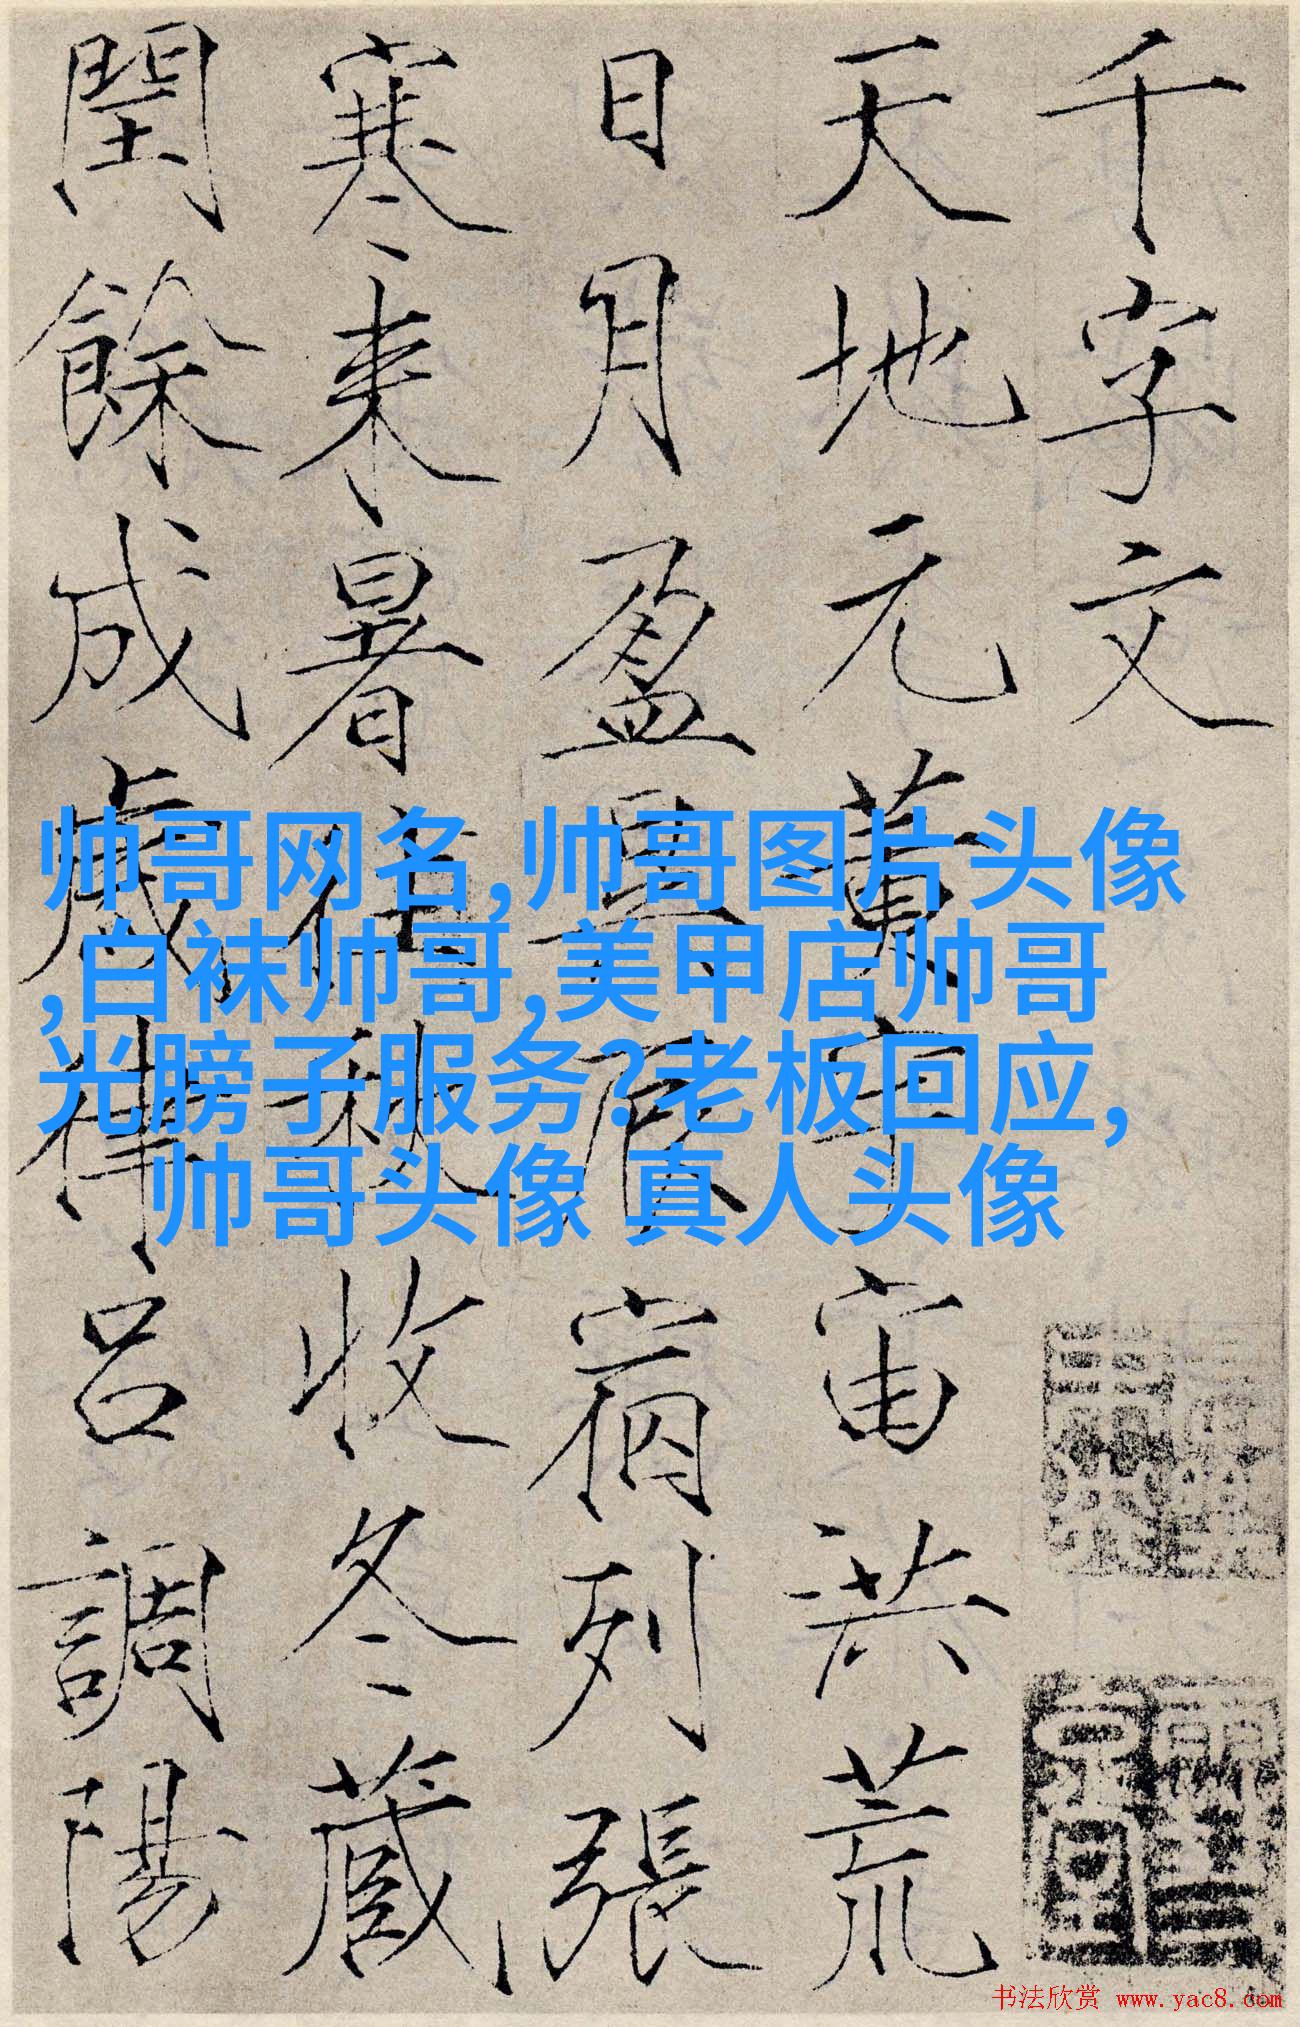 千字文
天地元黄宇宙洪荒
日月盈昃辰宿列張
寒来暑往秋收冬蔵
閏餘成歳律吕調陽
帅哥网名,帅哥图片头像
,白袜帅哥,美甲店帅哥
光膀子服务?老板回应,
帅哥头像 真人头像
书法欣赏 www.yac8.com